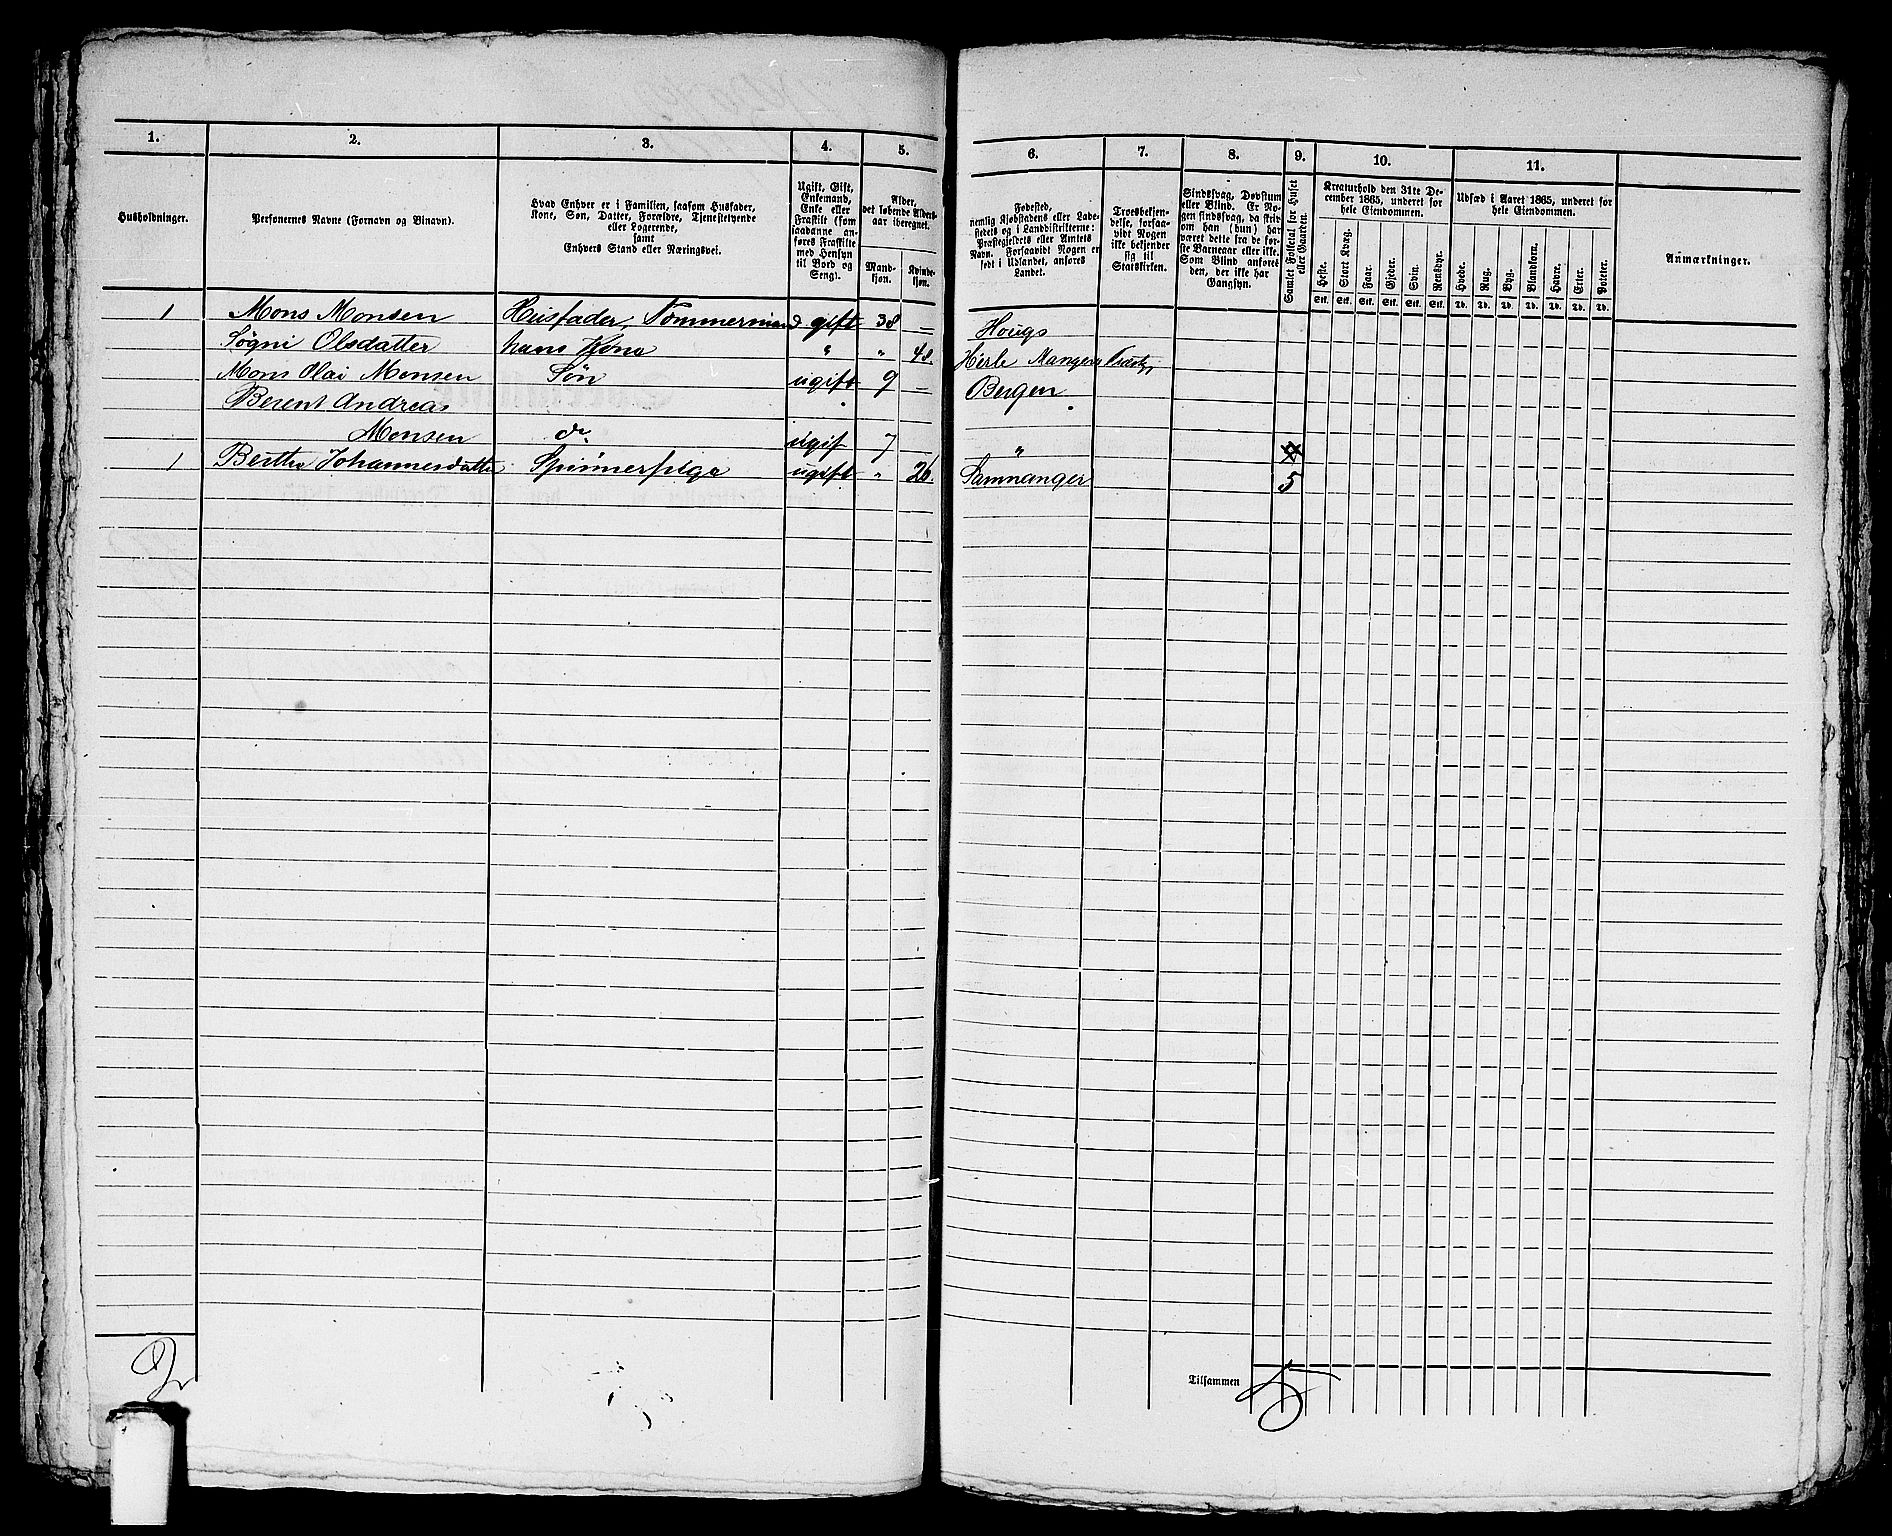 1. 2. 3. 4. 5. 6. 7. 8. 9. 10. 11.
Husholdninger.
Personernes Navne (Fornavn og Binavn).
Hvad Enhver er i Familien, saasom Husfader,
Kone, Søn, Datter, Forældre, Tjenestetyende
eller Logerende,
samt
Enhvers Stand eller Næringsvei.
Ugift, Gift,
Enkemand,
Enke eller
Fraskilt (som
saadanne an-
føres Fraskilte
med Hensyn
til Bord og
Seng).
Alder,
det løbende Alders-
aar iberegnet.
Mand-
kjøn.
Kvinde-
kjøn.
Fødested,
nemlig Kjøbstadens eller Lade-
stedets og i Landdistrikterne:
Præstegjeldets eller Amtets
Navn. Forsaavidt Nogen er
født i Udlandet, anføres
Landet.
Troesbekjen-
delse, forsaa-
vidt Nogen
ikke bekjender
sig til
Statskirken.
Sindssvag, Døvstum
eller Blind. Er No-
gen sindssvag, da skriv
om han (hun) har
været dette fra de før-
ste Barneaar eller ikke.
Som Blind anføres
den, der ikke har
Gangsyn.
Samlet Folketal for Huset
eller Gaarden.
Kreaturhold den 31te De-
cember 1865, underet for
hele Eiendommen.
Heste. Stort Kvæg. Faar. Gjeder. Svin. Rensdyr.
Stk. Stk. Stk. Stk. Stk. Stk.
Udsæd i Aaret 1865, underet for
hele Eiendommen.
Hvede. Rug. Byg. Blandkorn. Havre. Erter. Poteter.
Td. Td. Td. Td. Td. Td. Td.
Anmærkninger.
1 Mons Monsen Husfader, Tømmermand gift 38 — Hougs
Søgni Olsdatter hans Kone " " 48. Herle Mangers
Mons Olai Monsen Søn ugift 9 — Bergen
Berent Andreas
Monsen do ugif 7 "
1 Bertha Johannesdatter Spinnerpige ugift " 26. Samnanger 5
2
Tilsammen 5